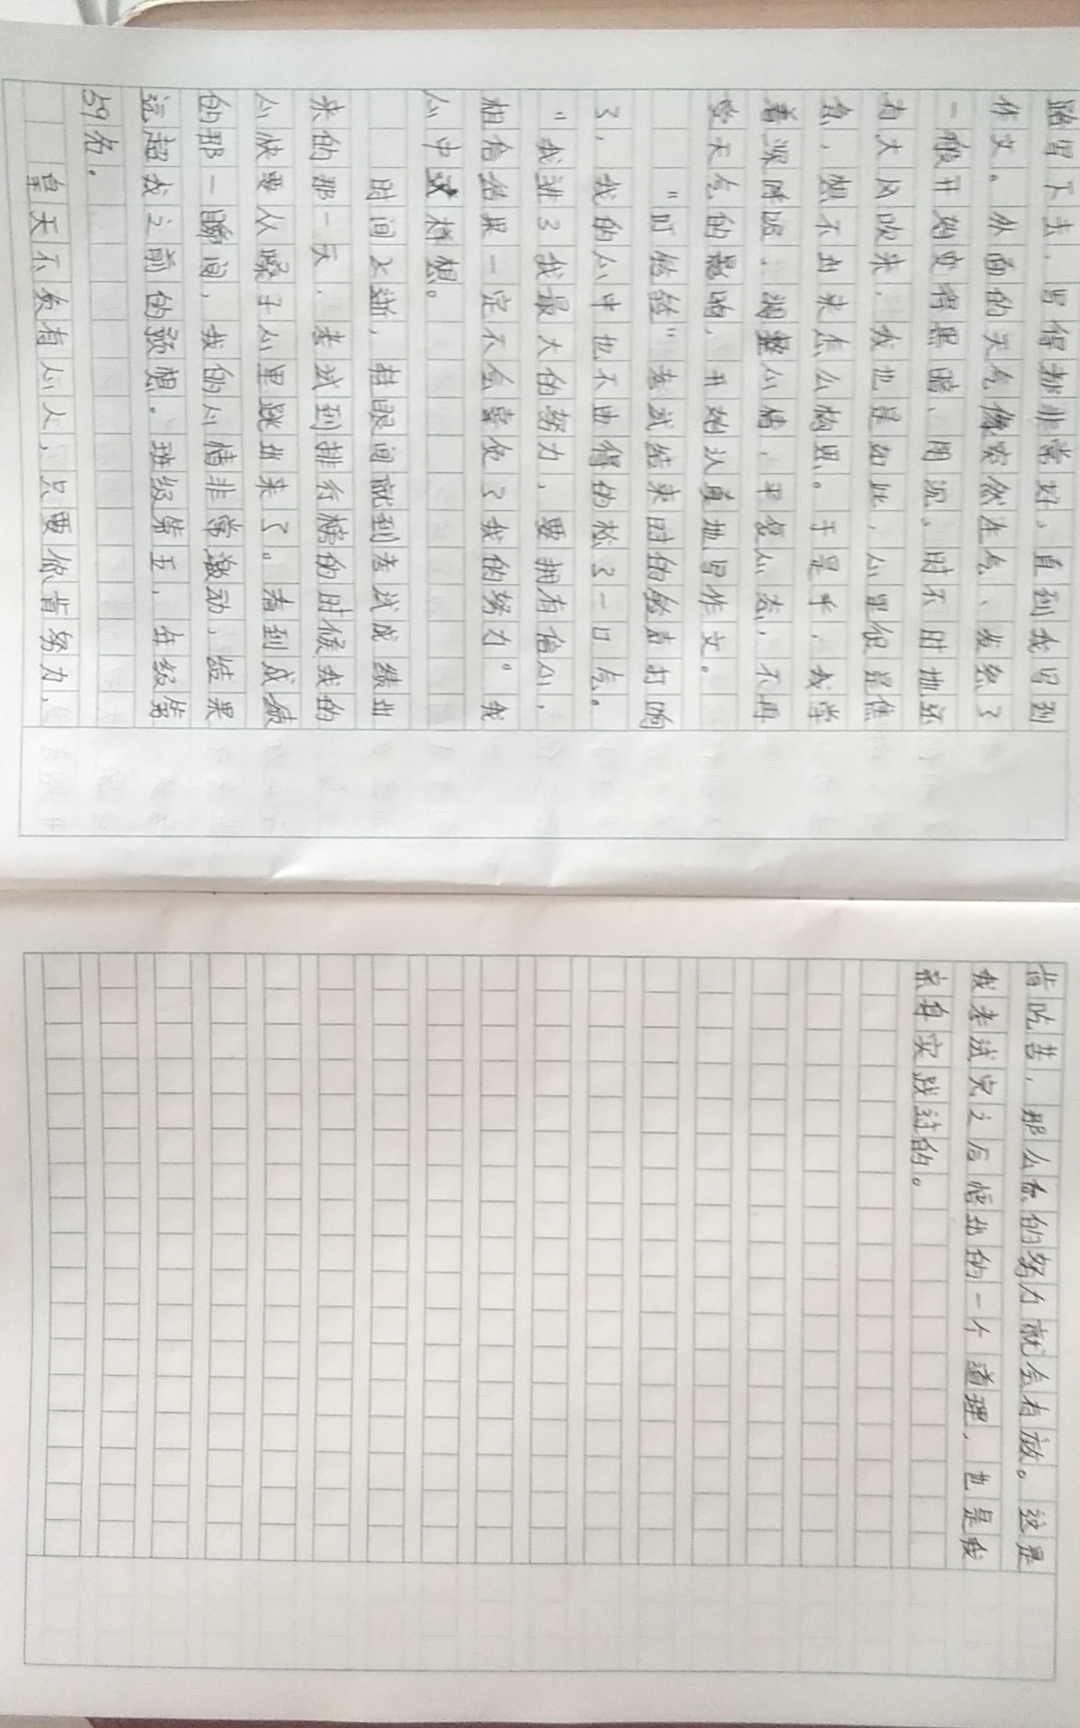 路写下去，写得都非常好，直到我写到
作文。外面的天气像突然生气、发怒了
一般开始变得黑暗、阴沉、时不时地还
有大风吹来，我也是如此，心里很是焦
急，想不出来怎么构思。于是乎，我学
着深呼吸、调整心情、平复心态，不再
受天气的影响，开始认真地写作文。
“叮铃铃”考试结束时的铃声打响
了，我的心中也不由得的松了一口气。
“我进了我最大的努力，要拥有信心，
相信结果一定不会辜负了我的努力”我
心中这样想。
时间飞逝，转眼间就到考试成绩出
来的那一天，考试到排行榜的时候我的
心快要从嗓子心里跳出来了。看到成绩
的那一瞬间，我的心情非常激动，结果
远超我之前的预想。班级第五，年级第
59名。
皇天不负有心人，只要你肯努力，
肯吃苦，那么你的努力就会有放。这是
我考试完之后悟出的一个道理，也是我
亲身实践过的。